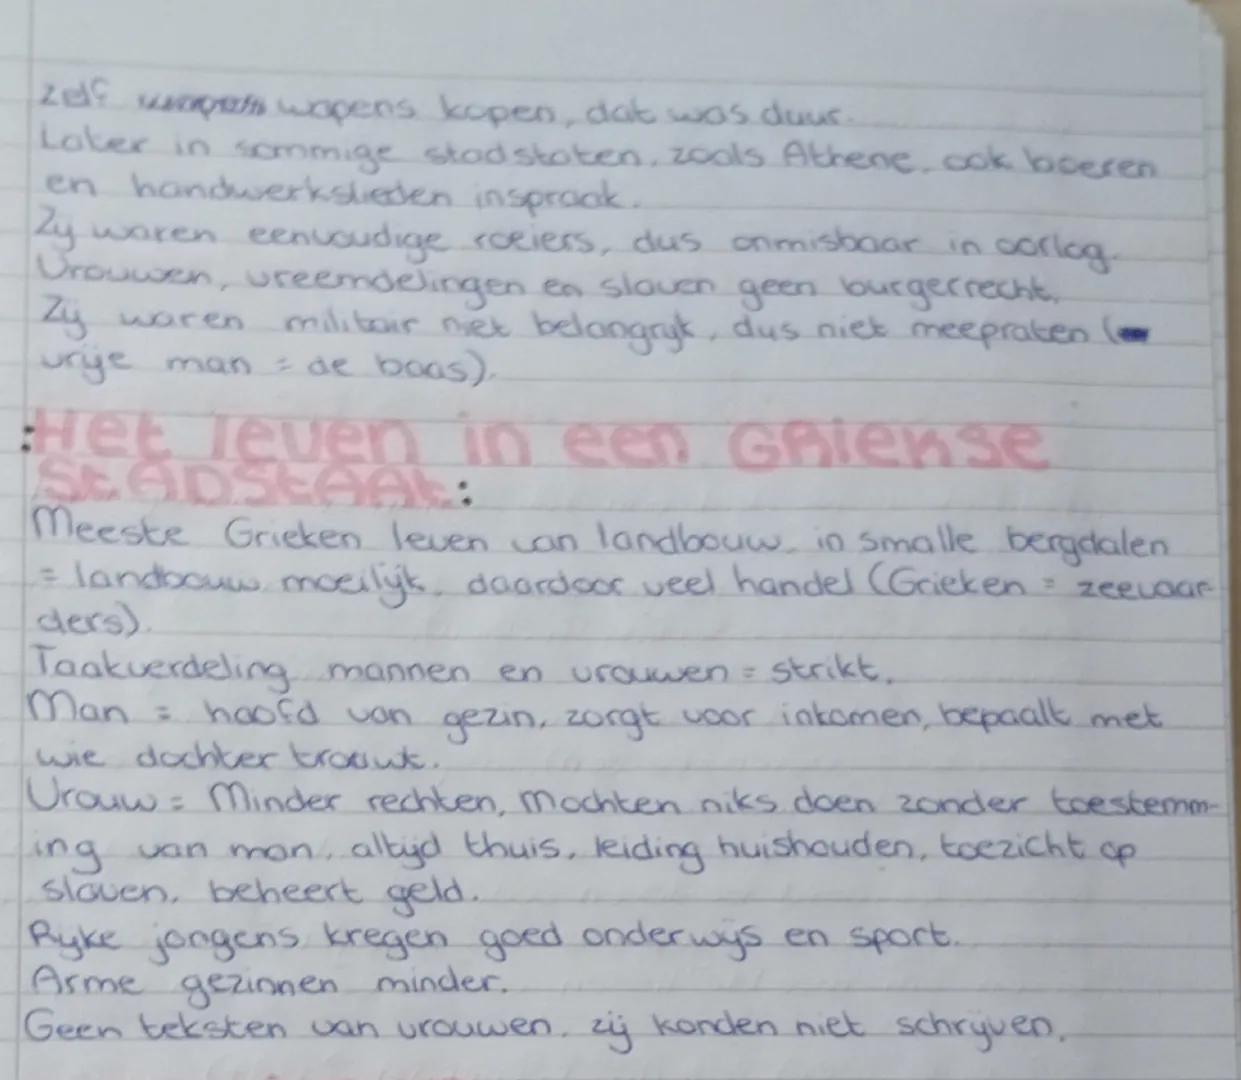 zelf wapens kopen, dat was duur.
Later in sommige stadstaten, zoals Athene, ook boeren
en handwerkslieden inspraak.
Zij waren eenvoudige roeiers, dus onmisbaar in oorlog.
Vrouwen, vreemdelingen en slaven geen burgerrecht.
Zij waren militair niet belangrijk, dus niet meepraten (
vrije man = de baas).
:Het leven in een GRiekse
StADStAAt:
Meeste Grieken leven van landbouw, in smalle bergdalen
= landbouw moeilijk, daardoor veel handel (Grieken = zeevaar-
ders).
Taakverdeling mannen en vrouwen = strikt.
Man = hoofd van gezin, zorgt voor inkomen, bepaalt met
wie dochter trouwt.
Vrouw = Minder rechten, mochten niks doen zonder toestemm-
ing van man, altijd thuis, leiding huishouden, toezicht op
slaven, beheert geld.
Rijke jongens kregen goed onderwijs en sport.
Arme gezinnen minder.
Geen teksten van vrouwen, zij konden niet schrijven.